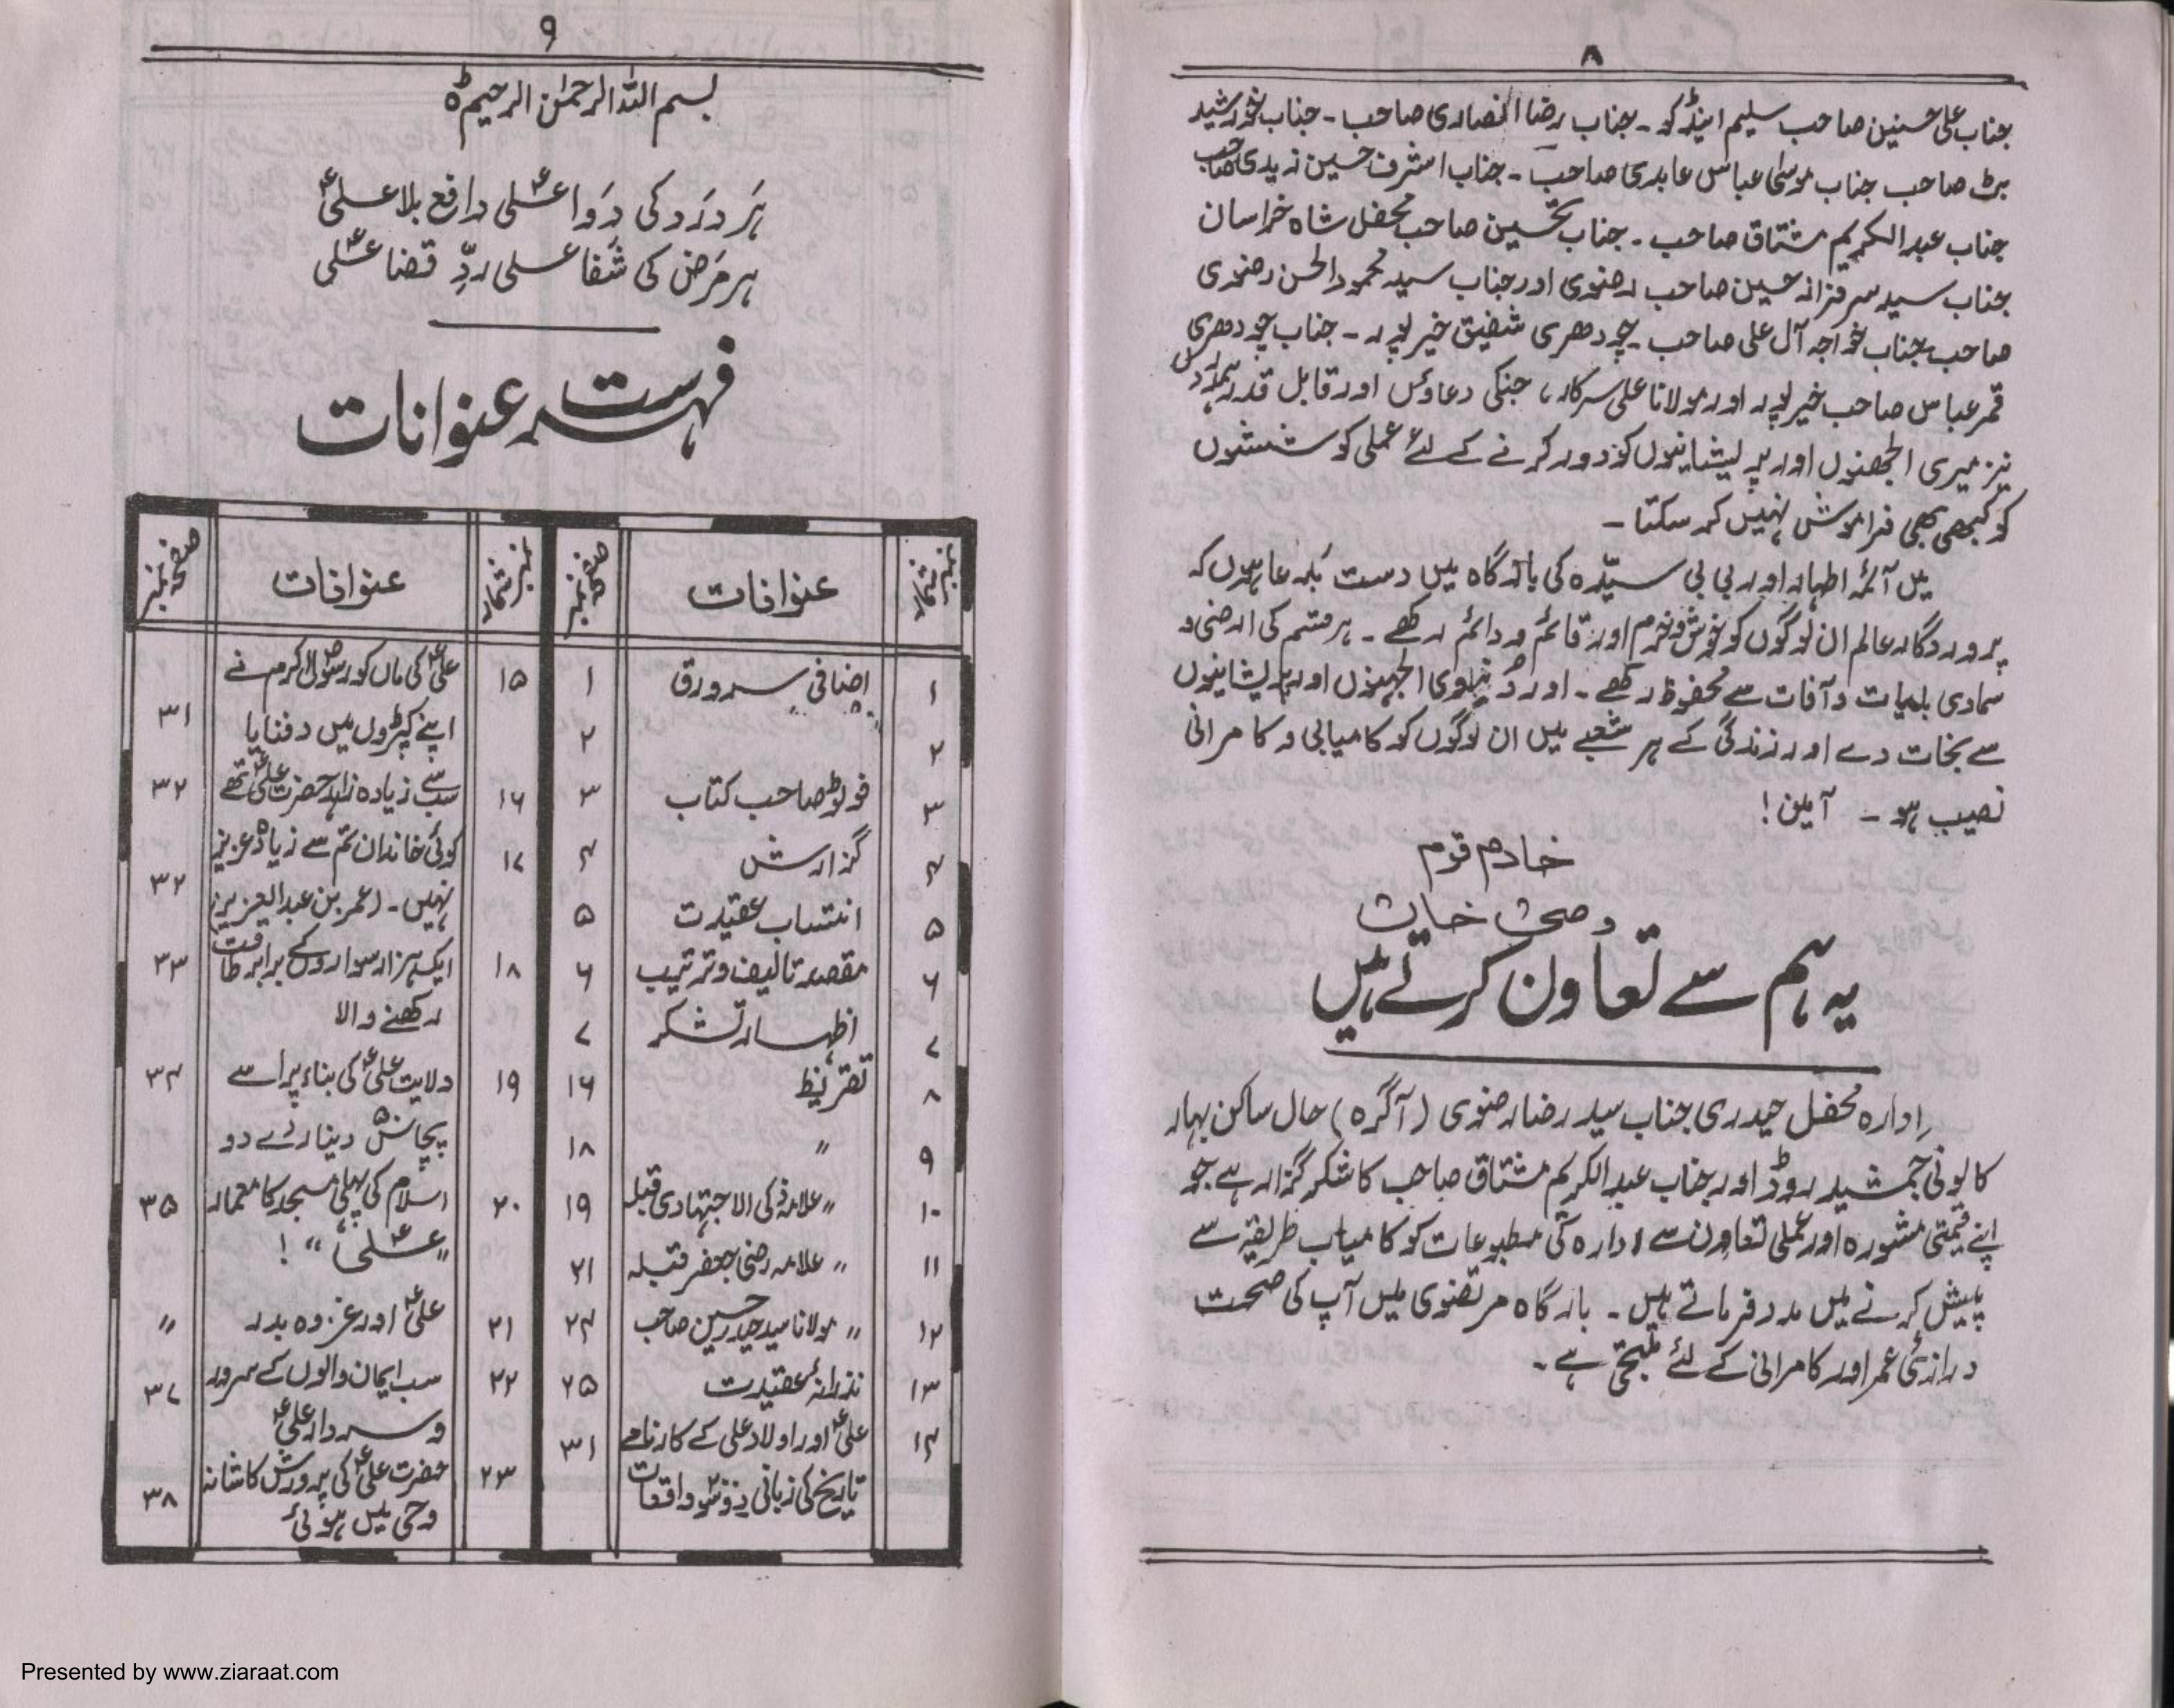 ۸
جناب علی حسنین صاحب سلیم اینڈ کو ۔ جناب رضا انصاری صاحب ۔ جناب خورشید
برٹ صاحب جناب موسیٰ عباس عابدی صاحب ۔ جناب اشرف حسین زیدی صاحب
جناب عبدالکریم مشتاق صاحب ۔ جناب تحسین صاحب محفل شاہ خراسان
جناب سید سرفراز حسین صاحب رضوی اور جناب سید محمود الحسن رضوی
صاحب جناب خواجہ آل علی صاحب ۔ چودھری شفیق خیرپور ۔ جناب چودھری
قمر عباس صاحب خیرپور اور مولانا علی سرکار، جنکی دعاؤں اور قابل قدر
نیز میری الجھنوں اور پریشانیوں کو دور کرنے کے لئے عملی کوششوں
کو کبھی بھی فراموش نہیں کر سکتا ۔
میں آئمہ اطہار اور بی بی سیّدہ کی بارگاہ میں دست بدعا ہوں کہ
پروردگار عالم ان لوگوں کو خوش و خرم اور قائم و دائم رکھے ۔ ہر قسم کی ارضی و
سماوی بلیات و آفات سے محفوظ رکھے ۔ اور دُنیاوی الجھنوں اور پریشانیوں
سے نجات دے اور زندگی کے ہر شعبے میں ان لوگوں کو کامیابی و کامرانی
نصیب ہو ۔ آمین !
خادم قوم
وصی خان
یہ ہم سے تعاون کرتے ہیں
ادارہ محفل حیدری جناب سید رضا رضوی (آگرہ) حال ساکن بہار
کالونی جمشید روڈ اور جناب عبدالکریم مشتاق صاحب کا شکر گزار ہے جو
اپنے قیمتی مشورہ اور عملی تعاون سے ادارہ کی مطبوعات کو کامیاب طریقہ سے
پیش کرنے میں مدد فرماتے ہیں ۔ بارگاہ مرتضوی میں آپ کی صحت
درازئ عمر اور کامرانی کے لئے ملتجی ہے ۔
۹
بسم اللہ الرحمٰن الرحیم ہ
ہَر دَرَد کی دَوا علیؑ دافع بلا علیؑ
ہر مَرَض کی شفا علی ردِّ قضا علیؑ
فہرست عنوانات
نمبر شمار عنوانات صفحہ نمبر
۱ اضافی سرورق ۱
۲ ״ ״ ۲
۳ فوٹو صاحب کتاب ۳
۴ گزارش ۴
۵ انتساب عقیدت ۵
۶ مقصد تالیف و ترتیب ۶
۷ اظہار تشکر ۷
۸ تقریظ ۱۶
۹ ״ ۱۸
۱۰ ״ علامہ ذکی الاجتہادی قبلہ ۱۹
۱۱ ״ علامہ رضی جعفر قبلہ ۲۱
۱۲ ״ مولانا سید حیدر حسین صاحب ۲۴
۱۳ نذرانۂ عقیدت ۲۵
۱۴ علیؑ اور اولاد علی کے کارنامے ۳۱
تاریخ کی زبانی واقعات
نمبر شمار عنوانات صفحہ نمبر
۱۵ علیؑ کی ماں کو رسول اکرمؐ نے
اپنے کپڑوں میں دفنایا ۳۱
۱۶ سب سے زیادہ زاہد حضرت علیؑ تھے ۳۲
۱۷ کوئی خاندان تم سے زیادہ عزیز
نہیں ۔ (عمر بن عبدالعزیز) ۳۲
۱۸ ایک ہزار سواروں کے برابر طاقت ۳۳
رکھنے والا
۱۹ ولایت علیؑ کی بناء پر اسے ۳۴
پچاس ۵۰ دینار دے دو
۲۰ اسلام کی پہلی مسجد کا معمار ۳۵
״علیؑ״ !
۲۱ علیؑ اور غزوہ بدر ״
۲۲ سب ایمان والوں کے سرور ۳۷
و سردار علیؑ
۲۳ حضرت علیؑ کی پرورش کاشانہ
وحی میں ہوئی ۳۸
Presented by www.ziaraat.com